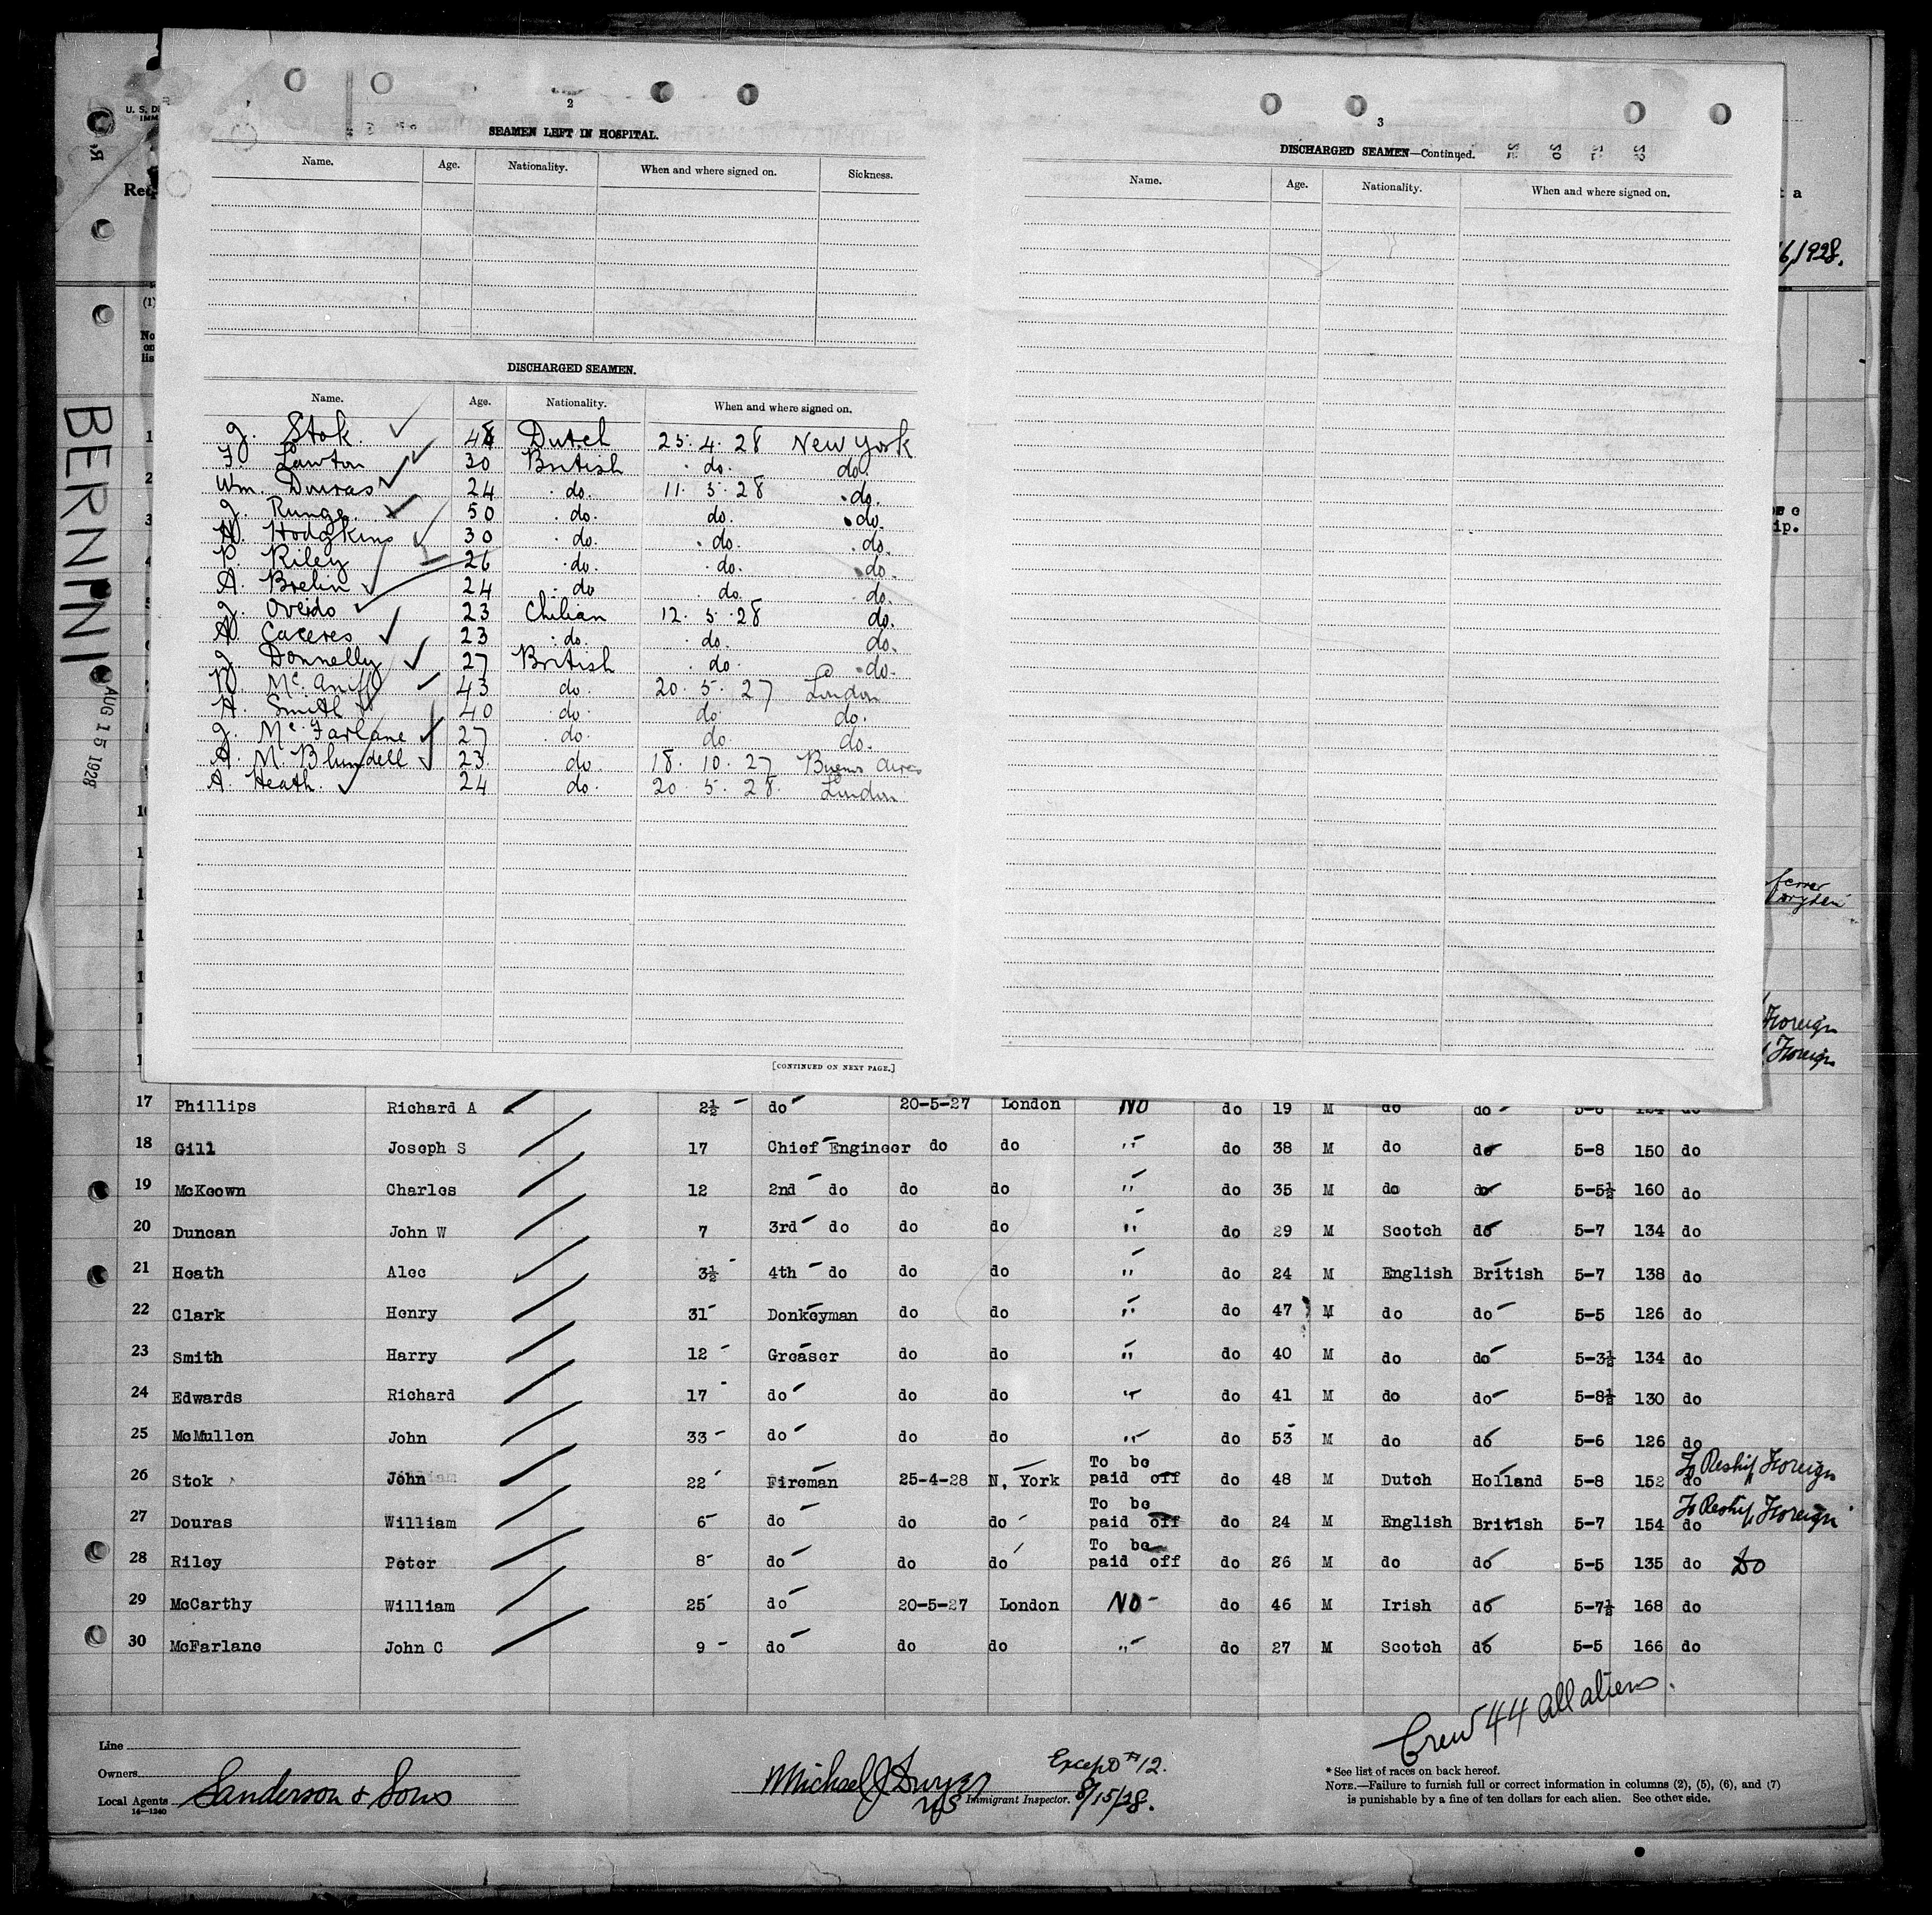 2
SEAMEN LEFT IN HOSPITAL.
Name. Age. Nationality. When and where signed on. Sickness.
DISCHARGED SEAMEN.
Name. Age. Nationality. When and where signed on.
J. Stok. 48 Dutch 25. 4. 28 New York
F. Lawton 30 British do. do.
Wm. Douras 24 do. 11. 5. 28 do.
J. Runge. 50 do. do. do.
H. Hodgkins 30 do. do. do.
P. Riley 26 do. do. do.
A. Brelin 24 do do. do.
J. Oveido 23 Chilian 12. 5. 28 do.
A. Caceres 23 do. do. do.
J. Donnelly 27 British do. do.
Mc. 43 do. 20. 5. 27 London
H. Smith 40 do. do. do.
J. Mc. Farlane 27 do. do. do.
A. M. Blundell 23. do. 18. 10. 27 Buenos Aires
A. Heath. 24 do. 20. 5. 28. London
[CONTINUED ON NEXT PAGE.]
3
DISCHARGED SEAMEN—Continued.
Name. Age. Nationality. When and where signed on.
U. S. D
IMM
Req
t a
16, 1928.
(1)
No
on
lis
BERNINI
AUG 15 1928
ip.
Foreign
Foreign
17 Phillips Richard A 2½ do 20-5-27 London NO do 19 M do do do
18 Gill Joseph S 17 Chief Engineer do do " do 38 M do do 5-8 150 do
19 McKeown Charles 12 2nd do do do " do 35 M do do 5-5½ 160 do
20 Duncan John W 7 3rd do do do " do 29 M Scotch do 5-7 134 do
21 Heath Alec 3½ 4th do do do " do 24 M English British 5-7 138 do
22 Clark Henry 31 Donkeyman do do " do 47 M do do 5-5 126 do
23 Smith Harry 12 Greaser do do " do 40 M do do 5-3½ 134 do
24 Edwards Richard 17 do do do " do 41 M do do 5-8½ 130 do
25 McMullen John 33 do do do " do 53 M do do 5-6 126 do
26 Stok John 22 Fireman 25-4-28 N. York To be paid off do 48 M Dutch Holland 5-8 152 do To Reship Foreign
27 Douras William 6 do do do To be paid off do 24 M English British 5-7 154 do To Reship Foreign
28 Riley Peter 8 do do do To be paid off do 26 M do do 5-5 135 do Do
29 McCarthy William 25 do 20-5-27 London NO do 46 M Irish do 5-7½ 168 do
30 McFarlane John C 9 do do do " do 27 M Scotch do 5-5 166 do
Crew 44 all aliens.
Line
Owners
Local Agents Sanderson & Sons
14—1240
Michael J Dwyer
Except #12.
Immigrant Inspector. 8/15/28.
* See list of races on back hereof.
NOTE.—Failure to furnish full or correct information in columns (2), (5), (6), and (7)
is punishable by a fine of ten dollars for each alien. See other side.